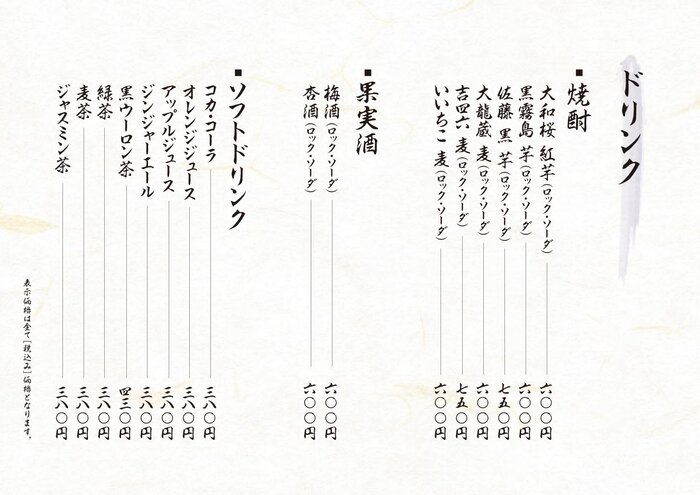 ドリンク
■焼酎
大和桜 紅芋(ロック・ソーダ) 六〇〇円
黒霧島 芋(ロック・ソーダ) 六〇〇円
佐藤 黒 芋(ロック・ソーダ) 七五〇円
大龍蔵 麦(ロック・ソーダ) 六〇〇円
吉四六 麦(ロック・ソーダ) 七五〇円
いいちこ 麦(ロック・ソーダ) 六〇〇円
■果実酒
梅酒(ロック・ソーダ) 六〇〇円
杏酒(ロック・ソーダ) 六〇〇円
■ソフトドリンク
コカ・コーラ 三八〇円
オレンジジュース 三八〇円
アップルジュース 三八〇円
ジンジャーエール 三八〇円
黒ウーロン茶 四三〇円
緑茶 三八〇円
麦茶 三八〇円
ジャスミン茶 三八〇円
表示価格は全て[税込み]価格となります。